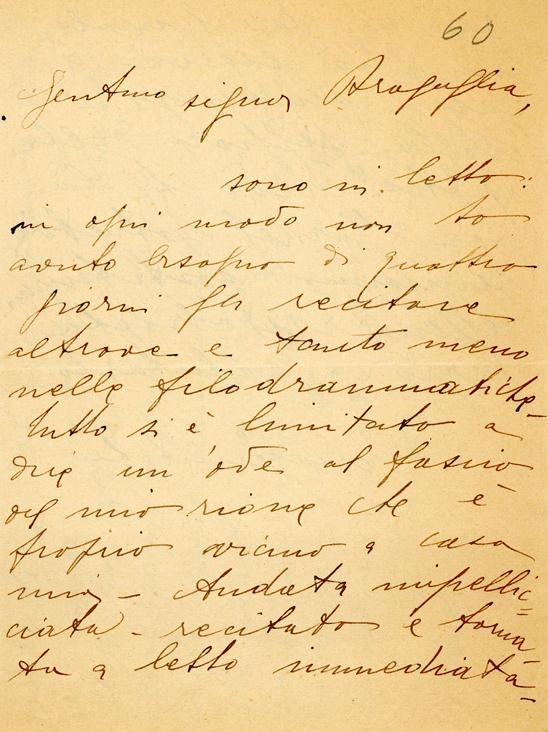 60
Gent.mo signor Bragaglia,
sono in letto:
in ogni modo non ho
avuto bisogno di quattro
giorni per recitare
altrove e tanto meno
nelle filodrammatiche -
Tutto si è limitato a
dire un'ode al fascio
del mio rione che è
proprio vicino a casa
mia - Andata impellic=
ciata - recitato e torna=
ta a letto immediata=